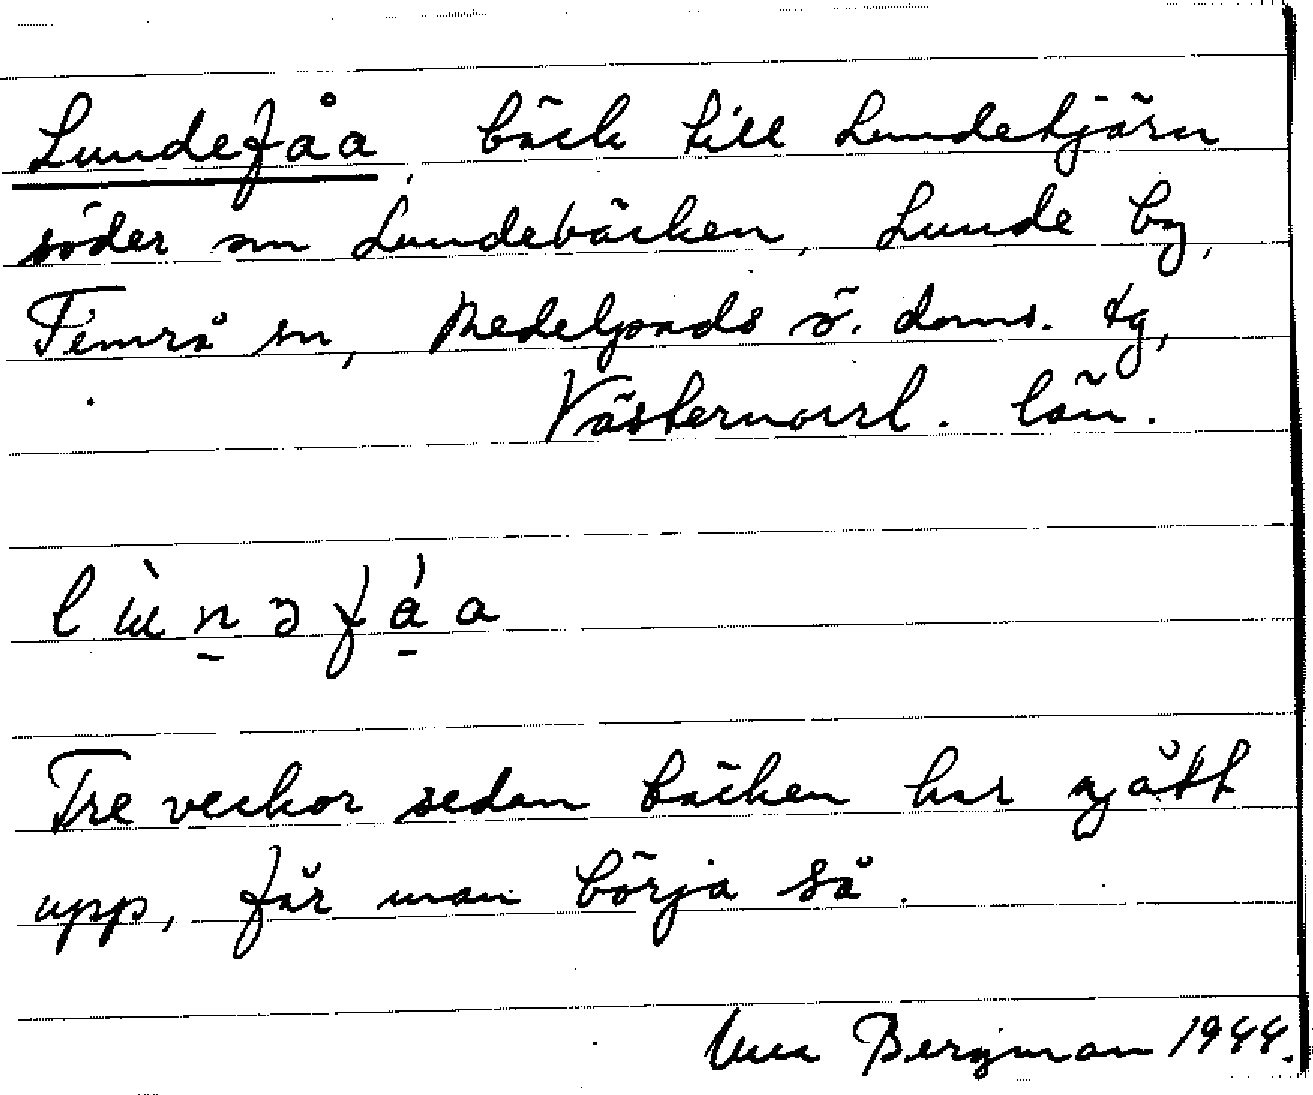 Lundefåa, bäck till Lundetjärn
söder om Lundebäcken, Lunde by,
Timrå sn, Medelpads ö. doms. tg,
Västernorrl. län.
lùnəfáa
Tre veckor sedan bäcken har gått
upp, får man börja så.
Bergman 1944.